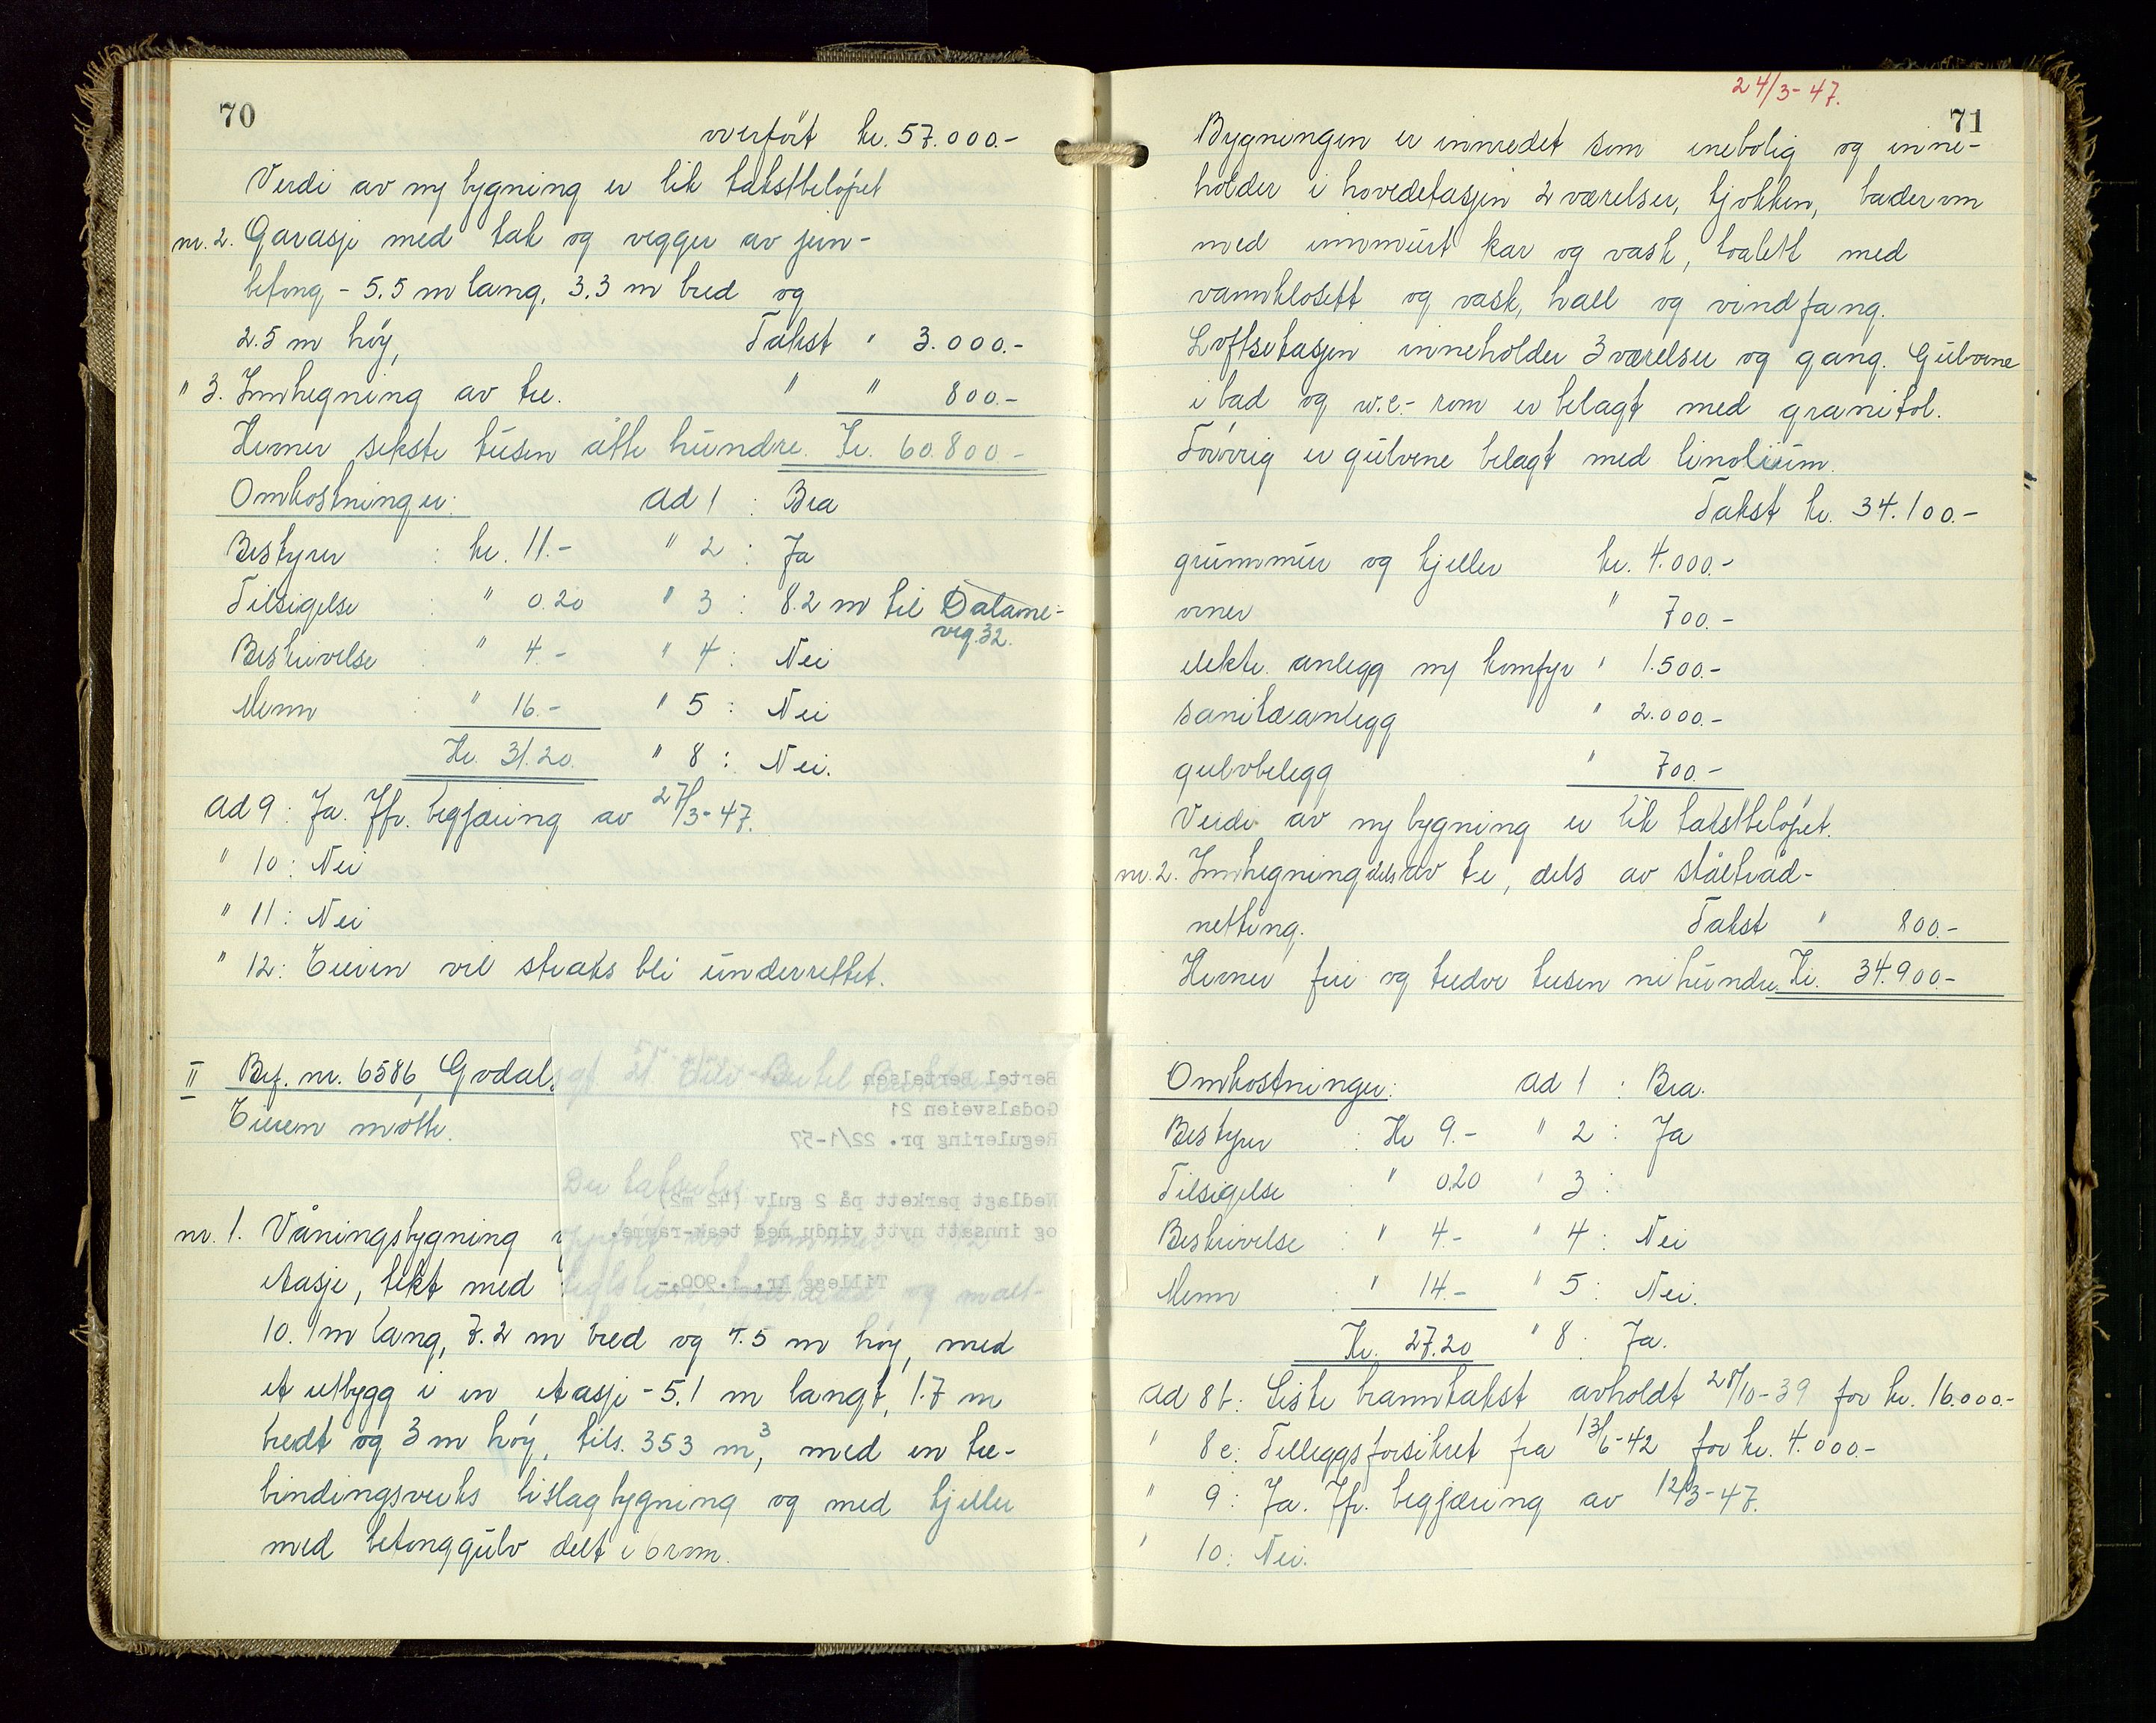 70
overført kr. 57.000.-
Verdi av ny bygning er lik takstbeløpet
nr. 2. Garasje med tak og vegger av jern-
betong - 5.5 m lang, 3.3 m bred og
2.5 m høy, Takst " 3.000.-
" 3. Innhegning av tre. " " 800.-
Herner seksti tusen åtte hundre. Kr. 60.800.-
Omkostninger: ad 1 : Bra
Bestyrer : kr. 11.- " 2 : Ja
Tilsigelse : " 0.20 " 3 : 8.2 m til Dalane-
veg. 32.
Beskrivelse : " 4.- " 4 : Nei
Menn : " 16.- " 5 : Nei
Kr. 31.20. " 8 : Nei.
ad 9 : Ja. Jfr. begjæring av 27/3-47.
" 10 : Nei
" 11 : Nei
" 12 : Eieren vil straks bli underrettet.
II Bef. nr. 6586, Godal
Eieren møtte.
Bertel Bertelsen
Godalsveien 21
Regulering pr. 22/1-57
Der takseres
Nedlagt parkett på 2 gulv (42 m2)
og innsatt nytt vindu med teak-ramme.
Tillegg kr. 1.900.-
nr. 1. Våningsbygning
etasje, tekt med og malt-
10.1 m lang, 7.2 m bred og 4.5 m høy, med
et utbygg i en etasje - 5.1 m langt, 1.7 m
bredt og 3 m høy, tils. 353 m³, med en tre-
bindingsverks bislagbygning og med kjeller
med betonggulv delt i 6 rom.
24/3-47.
71
Bygningen er innredet som enebolig og inne-
holder i hovedetasjen 2 værelser, kjøkken, baderom
med innmurt kar og vask, toalett med
vannklosett og vask, hall og vindfang.
Loftsetasjen inneholder 3 værelser og gang. Gulvene
i bad og w.c.- rom er belagt med granitol.
Forøvrig er gulvene belagt med linolium.
Takst kr. 34.100.-
grunnmur og kjeller kr. 4.000.-
ovner " 700.-
elektr. anlegg m/ komfyr " 1.500.-
sanitæranlegg " 2.000.-
gulvbelegg " 700.-
Verdi av ny bygning er lik takstbeløpet.
nr. 2. Innhegning dels av tre, dels av ståltråd-
netting. Takst " 800.-
Herner fire og tredve tusen ni hundre. Kr. 34.900.-
Omkostninger: ad 1 : Bra.
Bestyrer : Kr 9.- " 2 : Ja
Tilsigelse : " 0.20 " 3 :
Beskrivelse : " 4.- " 4 : Nei
Menn : " 14.- " 5 : Nei.
Kr. 27.20 " 8 : Ja.
ad 8 b : Siste branntakst avholdt 28/10-39 for kr. 16.000.-
" 8 c : Tilleggsforsikret fra 13/6-42 for kr. 4.000.-
" 9 : Ja. Jfr. begjæring av 12/3-47.
" 10 : Nei.